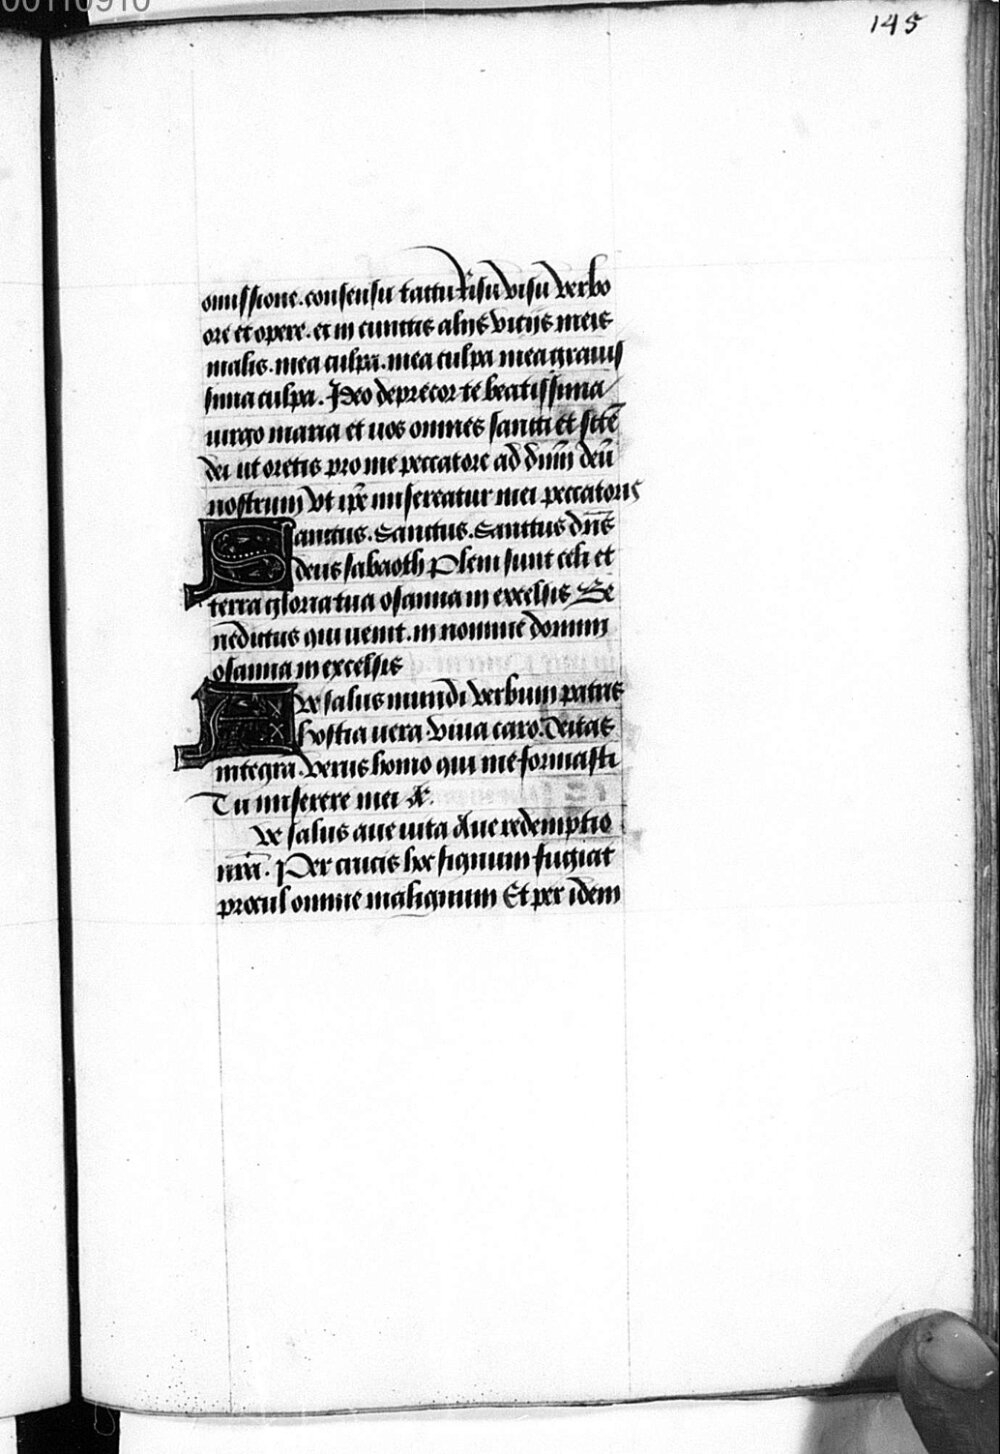 00110910
145
omissione. consensu tactu risu visu verbo
ore et opere. et in cunctis alijs vicijs meis
malis. mea culpa. mea culpa mea grauis
sima culpa. Ideo deprecor te beatissima
uirgo maria et uos omnes sancti et scte
dei ut oretis pro me peccatore ad dnm deū
nostrum Vt ipē misereatur mei peccatoris
Sanctus. Sanctus. Sanctus dns
deus sabaoth Pleni sunt celi et
terra gloria tua osanna in excelsis Be
nedictus qui uenit. in nomine domini
osanna in excelsis
Aue salus mundi verbum patris
hostia uera. viua caro. deitas
integra. verus homo qui me formasti
Tu miserere mei &.
Ve salus aue uita Aue redemptio
nrā. Per crucis hoc signum fugiat
procul omne malignum Et per idem